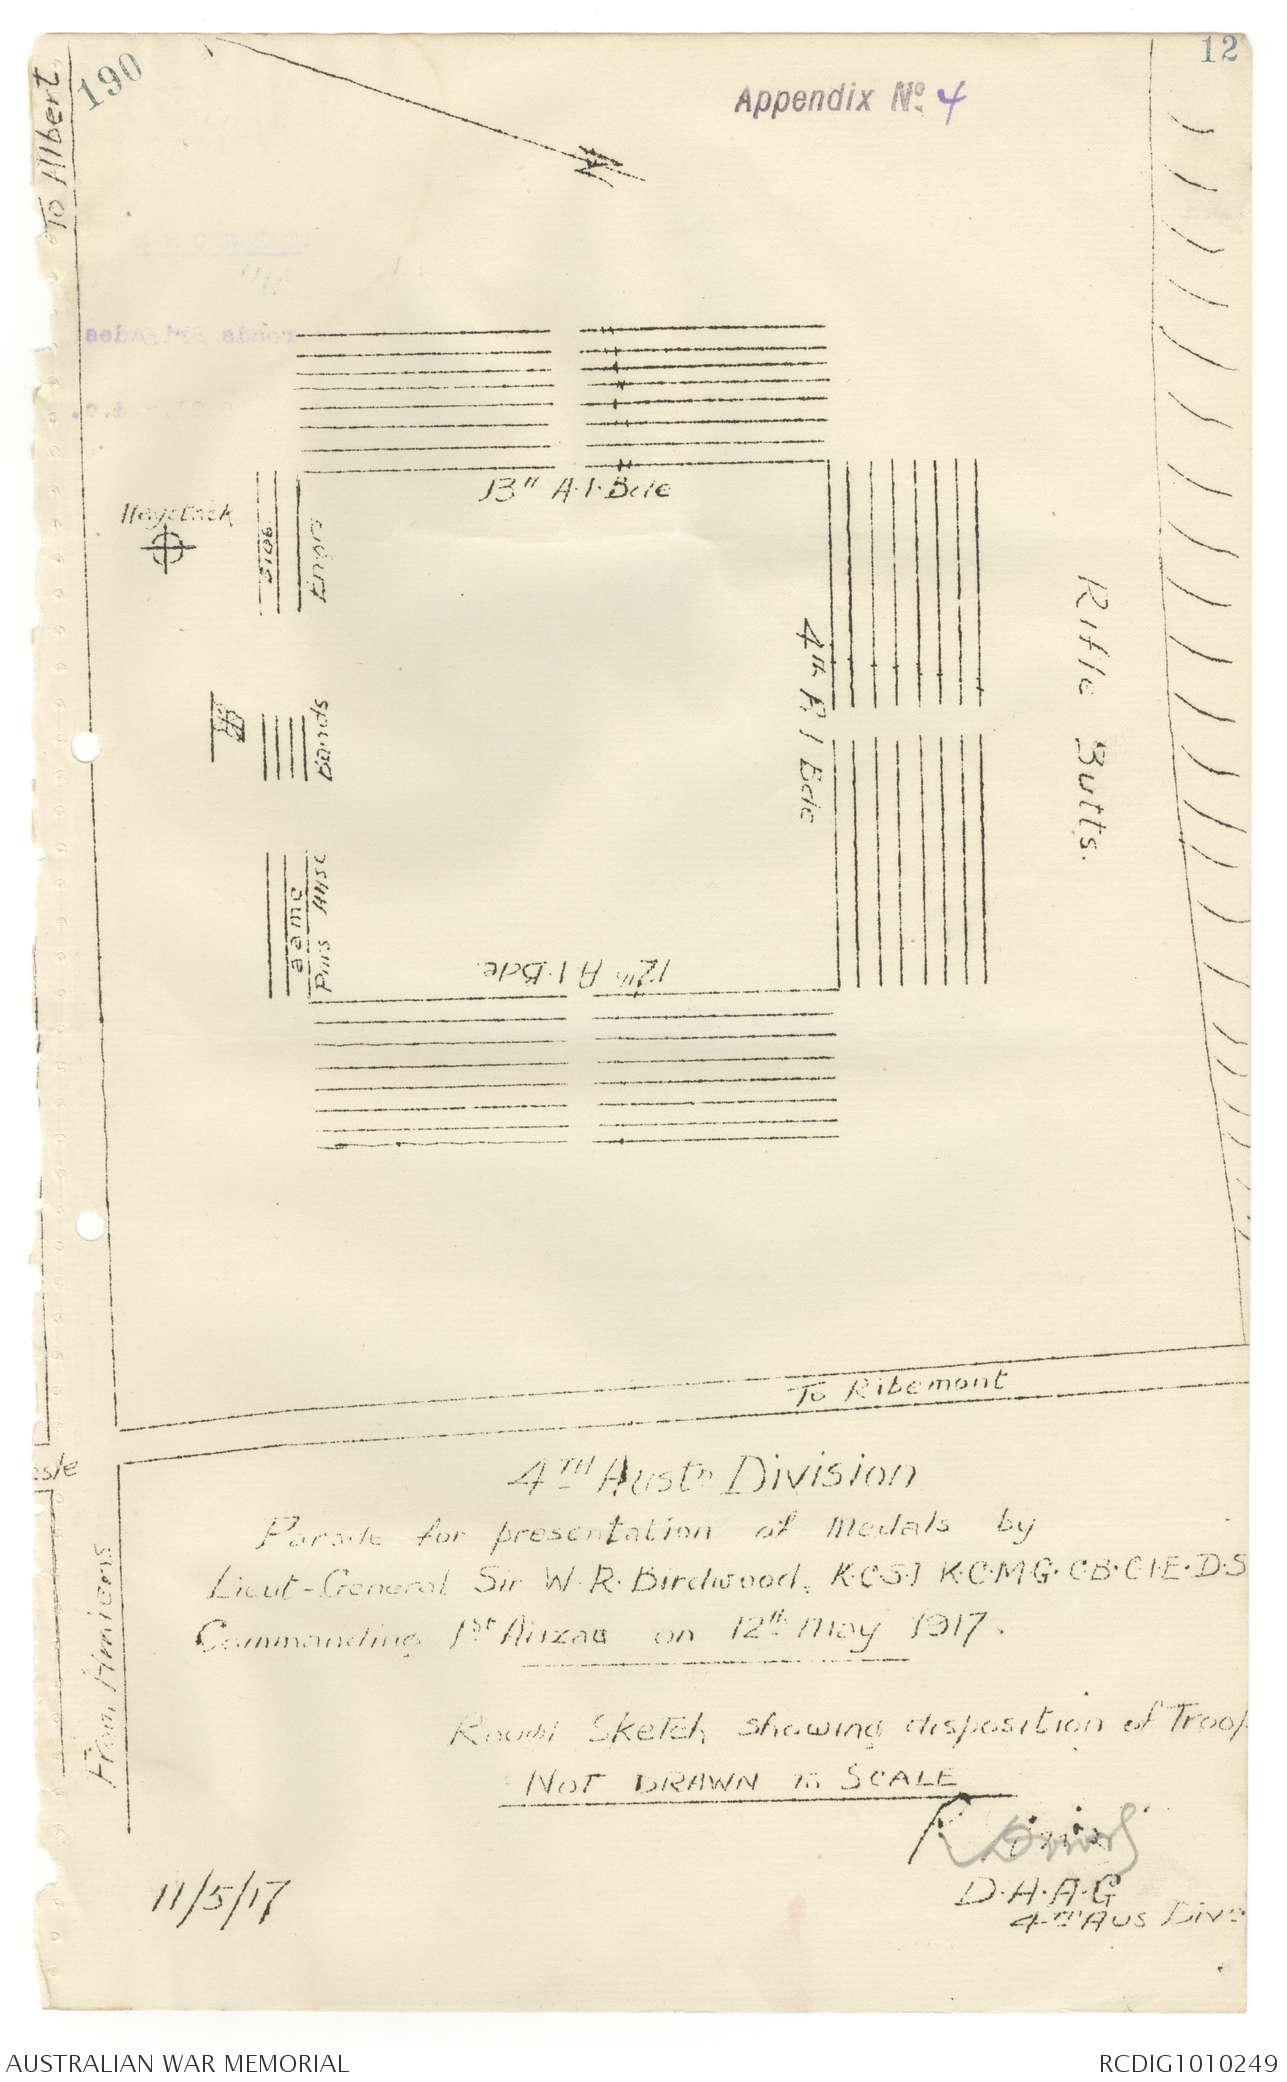 190
12
Appendix No. 4
To Albert
13th A.I. Bde
Haystack
Engrs
4th A I Bde
Rifle Butts.
Bands
aamc
AASC
12th A I. Bde.
To Ribemont
esle
From Amiens
4TH Austn Division
Parade for presentation of Medals by
Lieut-General Sir W.R. Birdwood, K.C.S.I K.C.M.G. C.B. C.I.E. D.S
Commanding 1st Anzac on 12th May 1917.
Rough Sketch showing disposition of Troop
NOT DRAWN to SCALE
D.A.A.G
4TH Aus Divn
11/5/17
AUSTRALIAN WAR MEMORIAL
RCDIG1010249